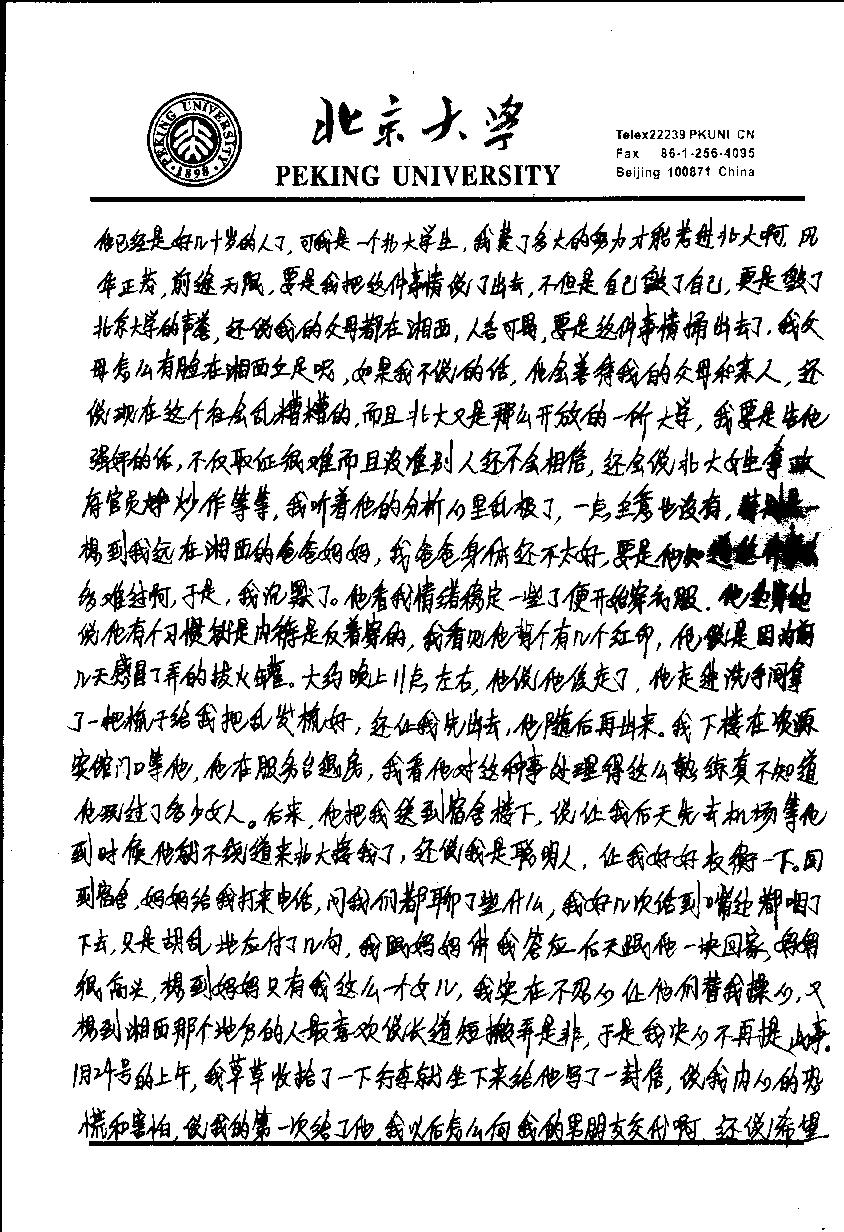 PEKING UNIVERSITY
1898
北京大学
PEKING UNIVERSITY
Telex22239 PKUNI CN
Fax 86-1-256-4095
Beijing 100871 China
他已经是好几十岁的人了,可我是一个北大学生,我费了多大的努力才能考进北大啊,风
华正茂,前途无限,要是我把这件事情说了出去,不但是自己毁了自己,更是毁了
北京大学的声誉,还说我的父母都在湘西,人言可畏,要是这件事情捅出去了,我父
母怎么有脸在湘西立足呢,如果我不说的话,他会善待我的父母和亲人,还
说现在这个社会乱糟糟的,而且北大又是那么开放的一所大学,我要是告他
强奸的话,不仅取证很难而且没准别人还不会相信,还会说北大女生拿政
府官员炒作等等,我听着他的分析心里乱极了,一点主意也没有,
想到我远在湘西的爸爸妈妈,我爸爸身体还不太好,要是他知道
多难过啊,于是,我沉默了。他看我情绪稳定一些了便开始穿衣服,他
说他有个习惯就是内裤是反着穿的,我看见他背个有几个红印,他说是因为前
几天感冒了弄的拔火罐。大约晚上11点左右,他说他该走了,他走进洗手间拿
了一把梳子给我把乱发梳好,还让我先出去,他随后再出来。我下楼在资源
宾馆门口等他,他在服务台退房,我看他对这种事处理得这么熟练真不知道
他玩过了多少女人。后来,他把我送到宿舍楼下,说让我后天先去机场等他
到时候他就不绕道来北大接我了,还说我是聪明人,让我好好权衡一下。回
到宿舍,妈妈给我打来电话,问我们都聊了些什么,我好几次话到嘴边都咽了
下去,只是胡乱地应付了几句,我跟妈妈讲我答应后天跟他一块回家,妈妈
很高兴,想到妈妈只有我这么一个女儿,我实在不忍心让他们替我操心,又
想到湘西那个地方的人最喜欢说长道短搬弄是非,于是我决心不再提此事。
1月24号的上午,我草草收拾了一下行李就坐下来给他写了一封信,说我内心的恐
慌和害怕,说我的第一次给了他,我以后怎么向我的男朋友交代啊,还说希望